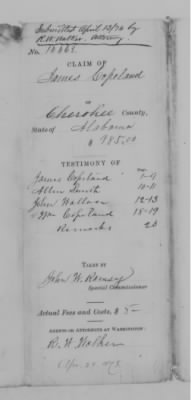 Submitted April 13/74 by
R. W. Walker, Attorney
No. 10669.
CLAIM OF
James Copeland
OF
Cherokee County,
State of Alabama
$ 985.00
TESTIMONY OF
Page.
James Copeland 1-9
Allen Smith 10-11
John Wallace 12-13
Wm Copeland 18-19
Remarks 20
TAKEN BY
John W. Ramsey
Special Commissioner
Actual Fees and Costs, $ 5-
AGENTS OR ATTORNEYS AT WASHINGTON:
R. W. Walker